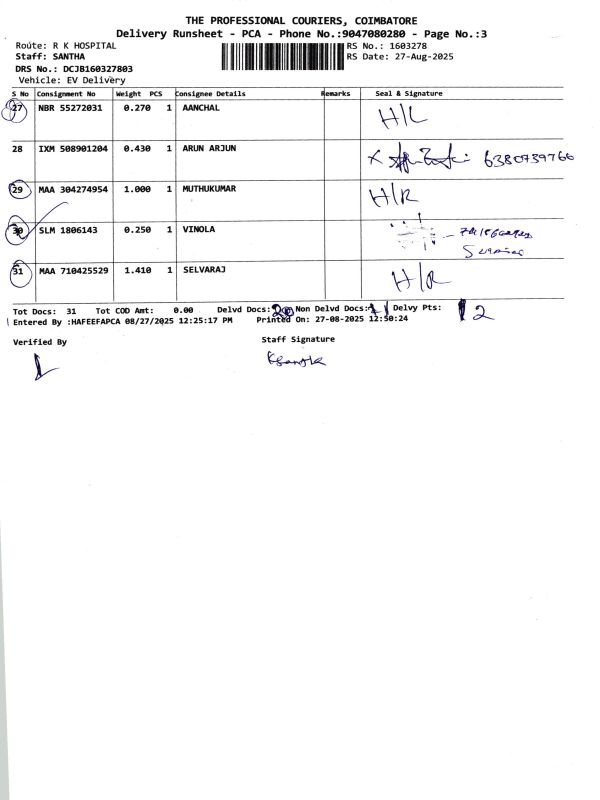 THE PROFESSIONAL COURIERS, COIMBATORE
Delivery Runsheet - PCA - Phone No.:9047080280 - Page No.:3
Route: R K HOSPITAL RS No.: 1603278
Staff: SANTHA RS Date: 27-Aug-2025
DRS No.: DCJB160327803
Vehicle: EV Delivery
S No Consignment No Weight PCS Consignee Details Remarks Seal & Signature
27 NBR 55272031 0.270 1 AANCHAL H/L
28 IXM 508901204 0.430 1 ARUN ARJUN 6380739766
29 MAA 304274954 1.000 1 MUTHUKUMAR H/R
30 SLM 1806143 0.250 1 VINOLA
31 MAA 710425529 1.410 1 SELVARAJ H/R
Tot Docs: 31 Tot COD Amt: 0.00 Delvd Docs: Non Delvd Docs: Delvy Pts: 12
Entered By :HAFEEFAPCA 08/27/2025 12:25:17 PM Printed On: 27-08-2025 12:50:24
Verified By Staff Signature